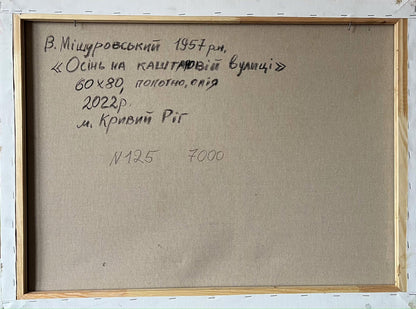 В. Мішуровський 1957 р.н.
«Осінь на каштановій вулиці»
60х80, полотно, олія
2022р.
м. Кривий Ріг
N125 7000